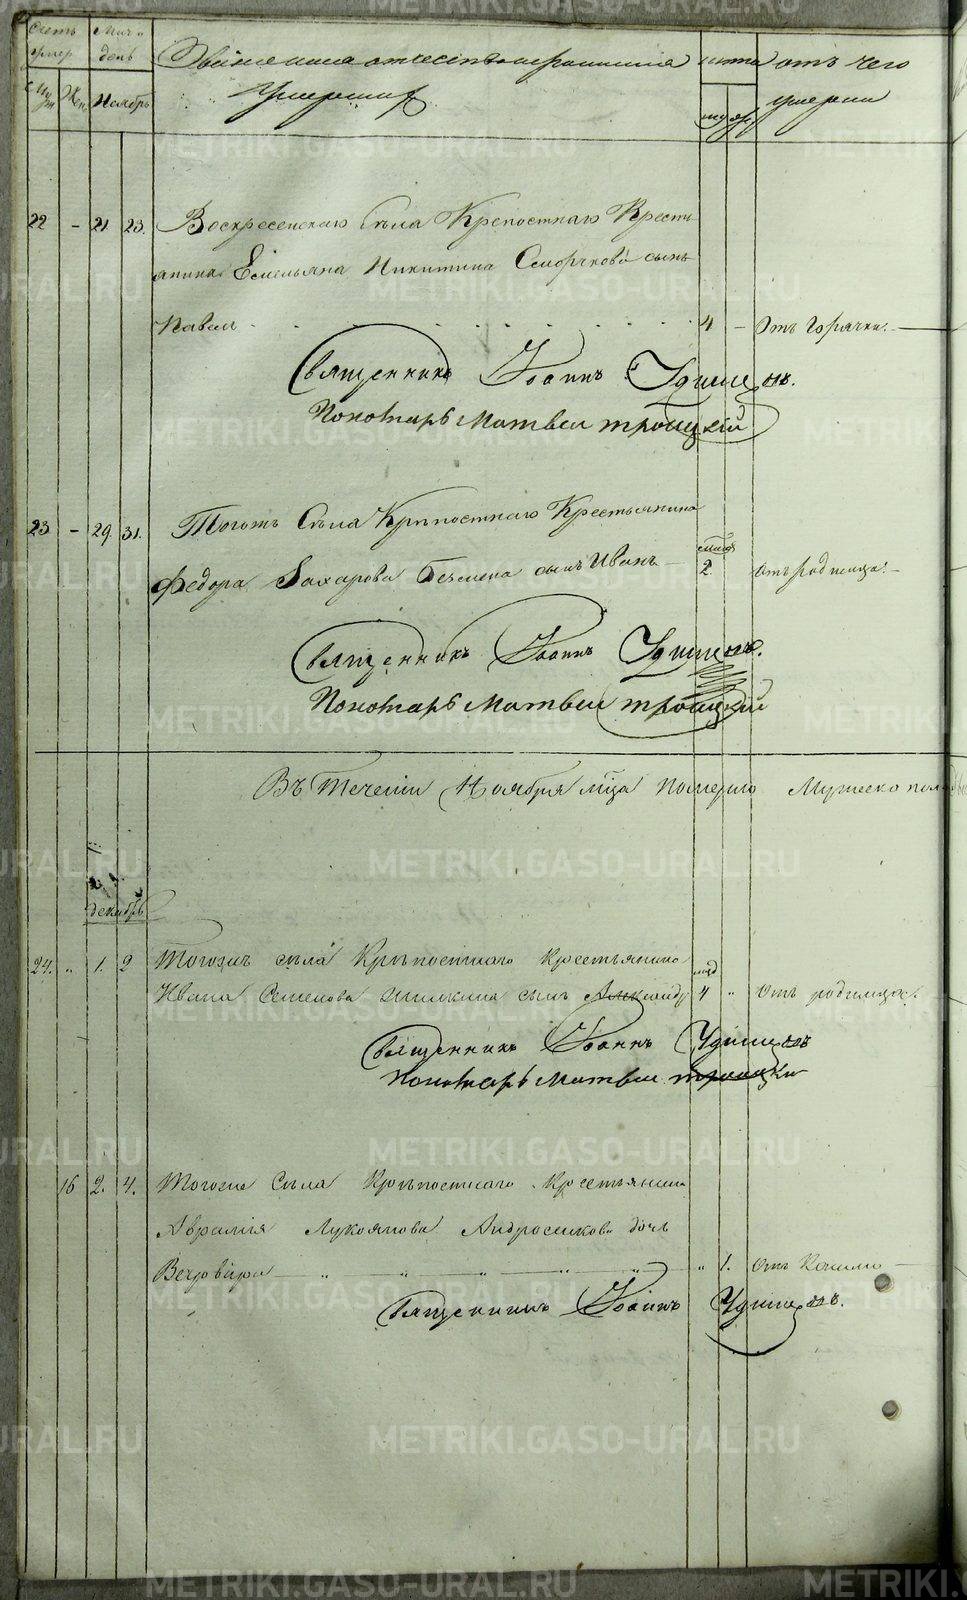 METRIKI.GASO-URAL.RU
Счетъ умер
Мѣс. день
Званіе имя отчество и фамилія
лѣта
отъ чего
Муж
Жен.
Ноябрь
Умершихъ
муж
умерли
22 - 21 23. Воскресенскаго Села Крепостнаго Кресть
янина Емельяна Никитина сынъ
Павел 4 - Отъ Горячки.
Священникъ Іоаннъ
Пономарь Матвеи Троицкій
23 - 29. 31. Тогожъ Села Крѣпостнаго Крестьянина
Федора Захарова сынъ Иванъ 2 Отъ родимца.
Священникъ Іоаннъ
Пономарь Матвеи Троицкій
Въ Теченіи Ноября мца Померло Мужеско пола
декабрь
24. " 1. 2 Тогожъ села Крѣпостнаго Крестьянина
Ивана Семенова сынъ Александр 4 " Отъ родимца.
Священникъ Іоаннъ
Пономарь Матвеи Троицки
16 2. 4. Тогоже Села Крѣпостнаго Крестьянина
Аврамія Лукоянова Андросикова дочь
" 1. Отъ Кашлю
Священникъ Іоаннъ